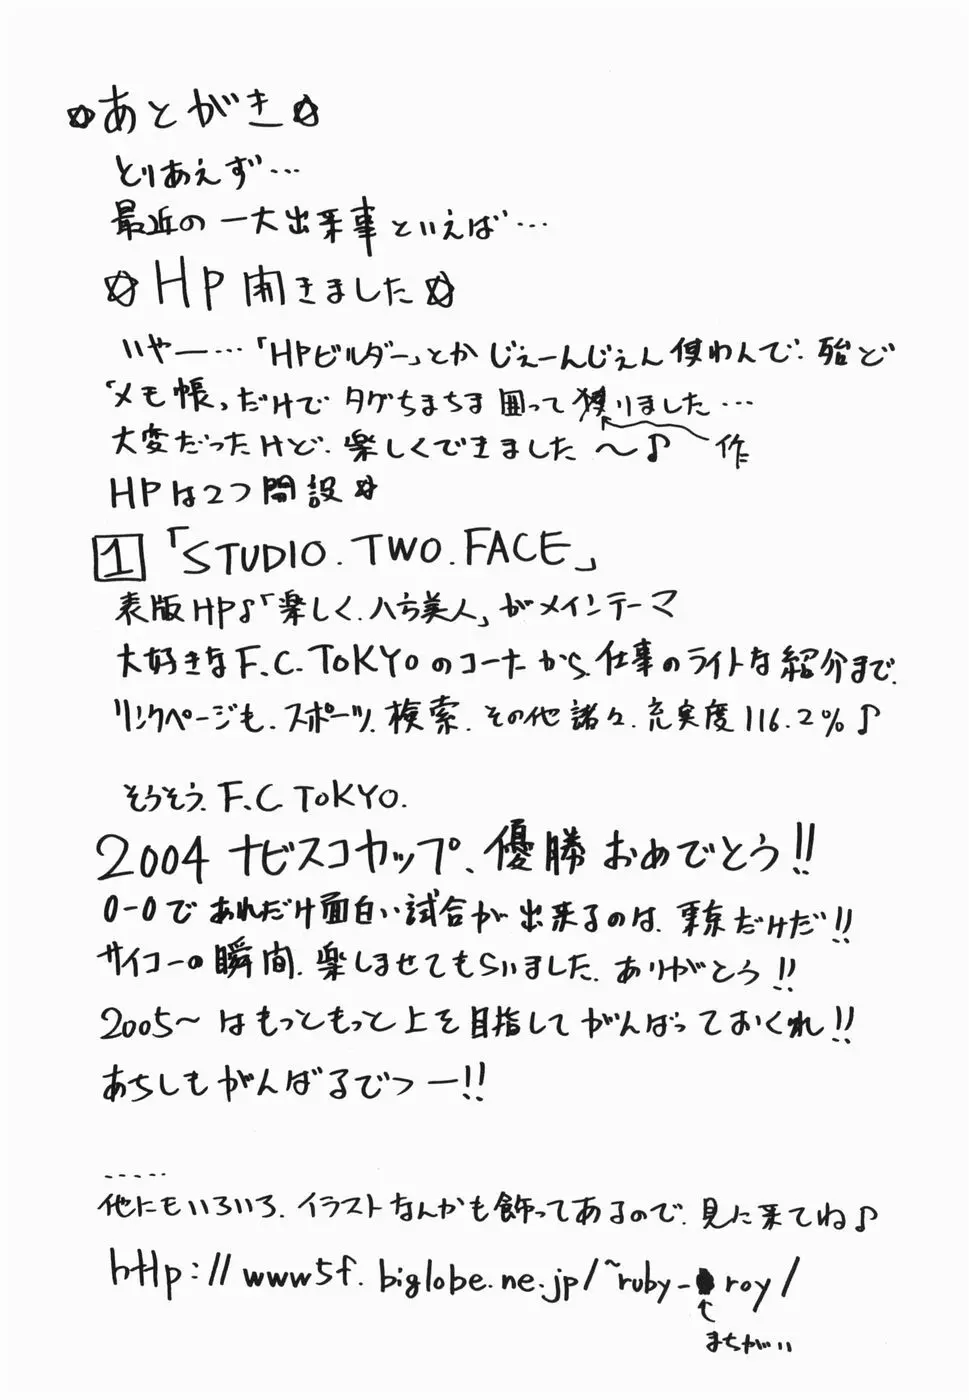 ☆あとがき☆
とりあえず…
最近の一大出来事といえば…
☆HP開きました☆
いやー…「HPビルダー」とかじぇーんじぇん使わんで、殆ど
「メモ帳」だけでタグちまちま囲って獲りました…
作
大変だったけど、楽しくできました〜♪
HPは2つ開設☆
1「STUDIO.TWO.FACE」
表版HP♪「楽しく、八方美人」がメインテーマ
大好きなF.C.TOKYOのコーナから、仕事のライトな紹介まで。
リンクページも、スポーツ、検索、その他諸々、充実度116.2%♪
そうそう、F.C TOKYO.
2004 ナビスコカップ、優勝おめでとう!!
0-0であれだけ面白い試合が出来るのは、東京だけだ!!
サイコーの瞬間、楽しませてもらいました、ありがとう!!
2005〜はもっともっと上を目指してがんばっておくれ!!
あちしもがんばるでつー!!
.....
他にもいろいろ、イラストなんかも飾ってあるので、見に来てね♪
http://www5f.biglobe.ne.jp/~ruby-roy/
まちがい